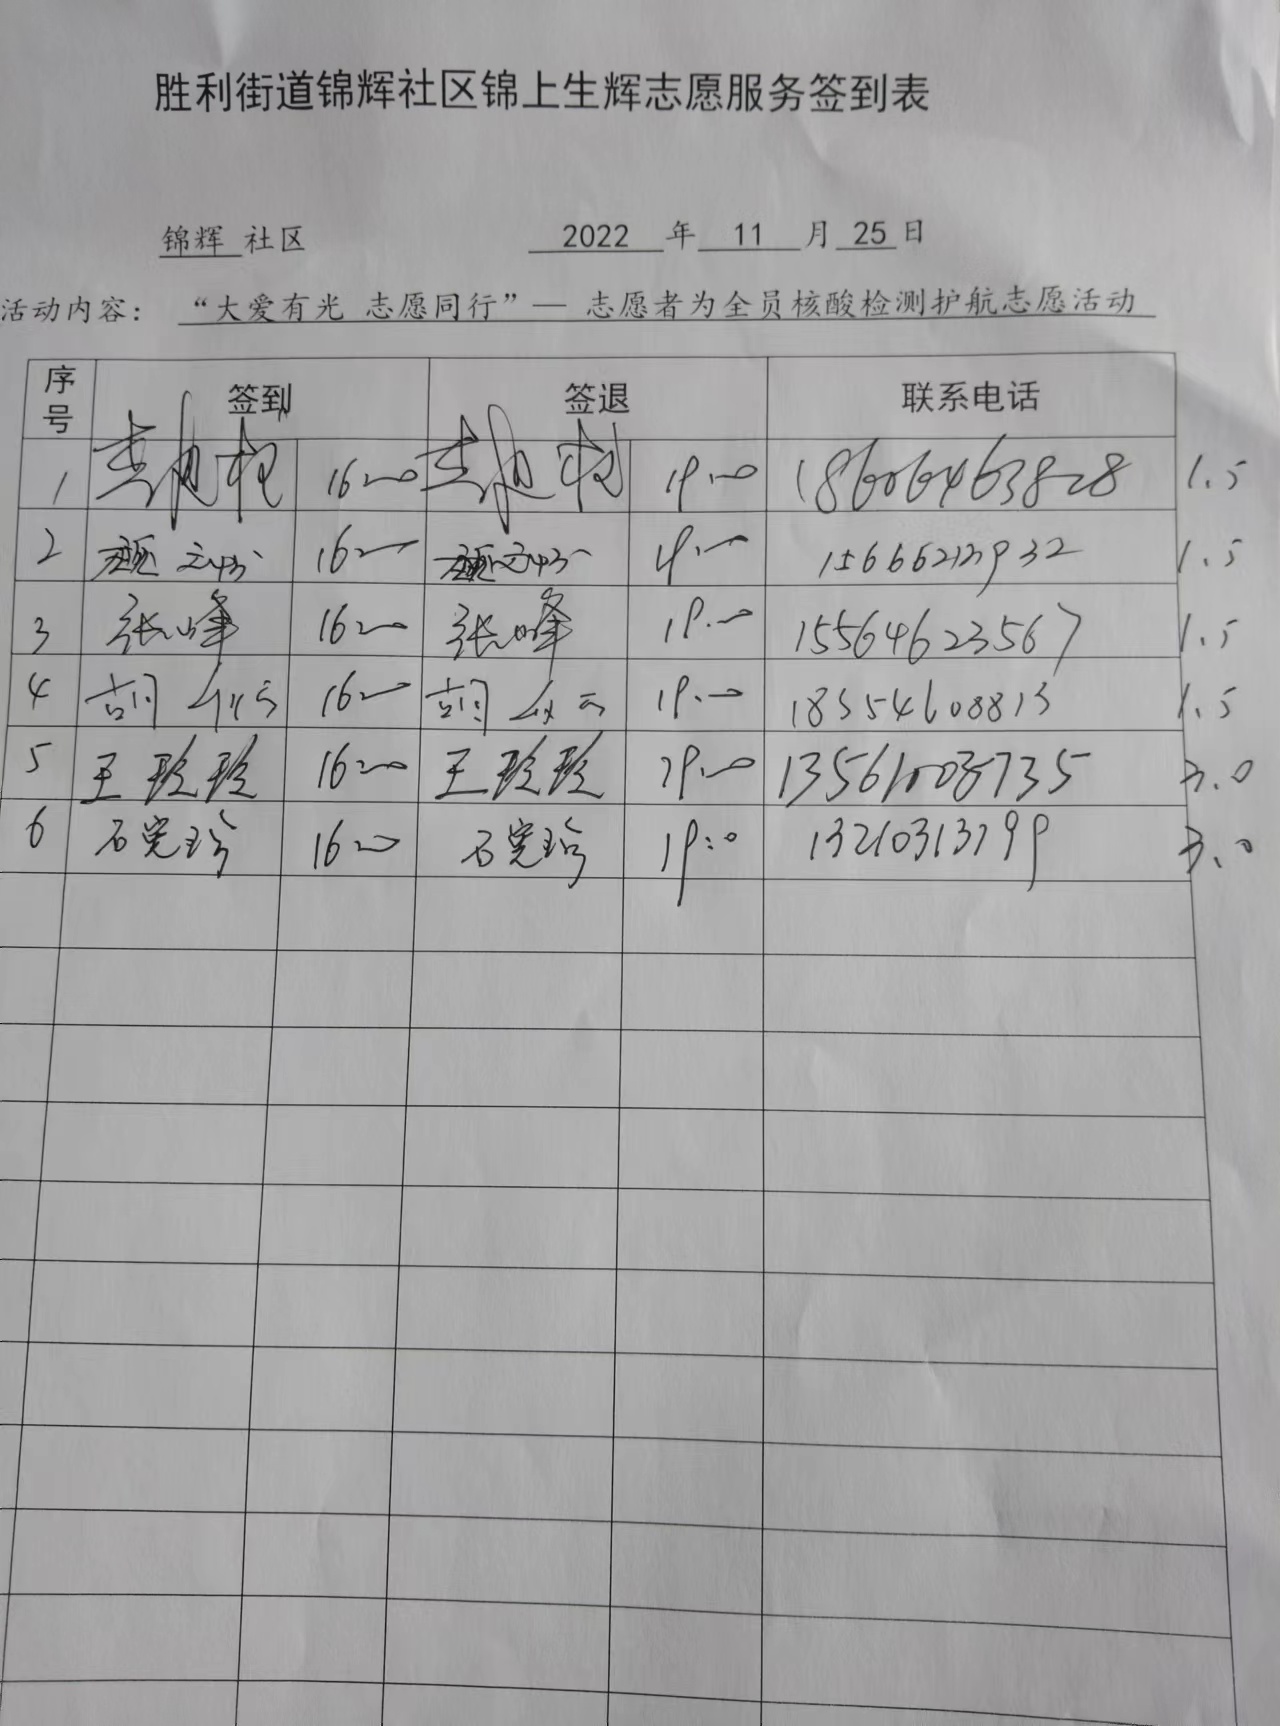 胜利街道锦辉社区锦上生辉志愿服务签到表
锦辉 社区 2022 年 11 月 25 日
活动内容： “大爱有光 志愿同行”— 志愿者为全员核酸检测护航志愿活动
序号 签到 签退 联系电话
1 16:00 19:00 18606463828 1.5
2 16:00 19:00 1.5
3 张峰 16:00 张峰 19:00 15564623567 1.5
4 胡 16:00 胡 19:00 18354608813 1.5
5 王玲玲 16:00 王玲玲 19:00 3.0
6 石宪玲 16:00 石宪玲 19:0 3.0